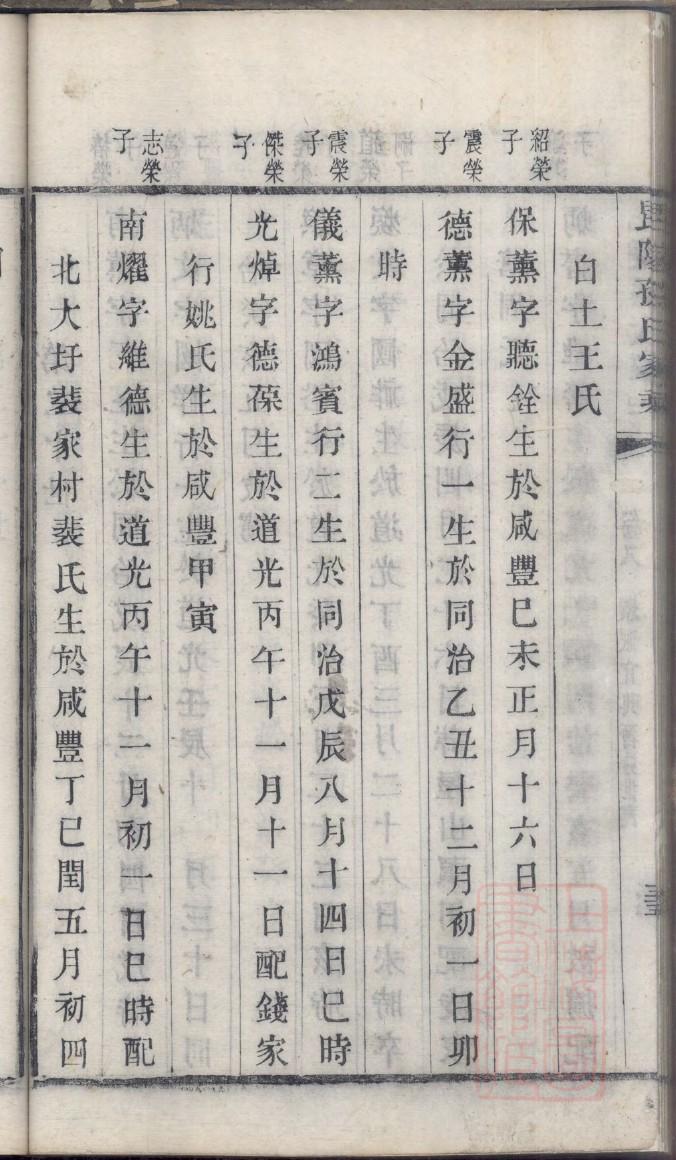 白土王氏
紹榮子
保薰字聽銓生於咸豐巳未正月十六日
震榮子
德薰字金盛行一生於同治乙丑十二月初一日卯
時
震榮子
儀薰字鴻賓行二生於同治戊辰八月十四日巳時
傑榮子
光焯字德葆生於道光丙午十一月十一日配錢家
行姚氏生於咸豐甲寅
志榮子
南燿字維德生於道光丙午十二月初一日巳時配
北大圩裴家村裴氏生於咸豐丁巳閏五月初四